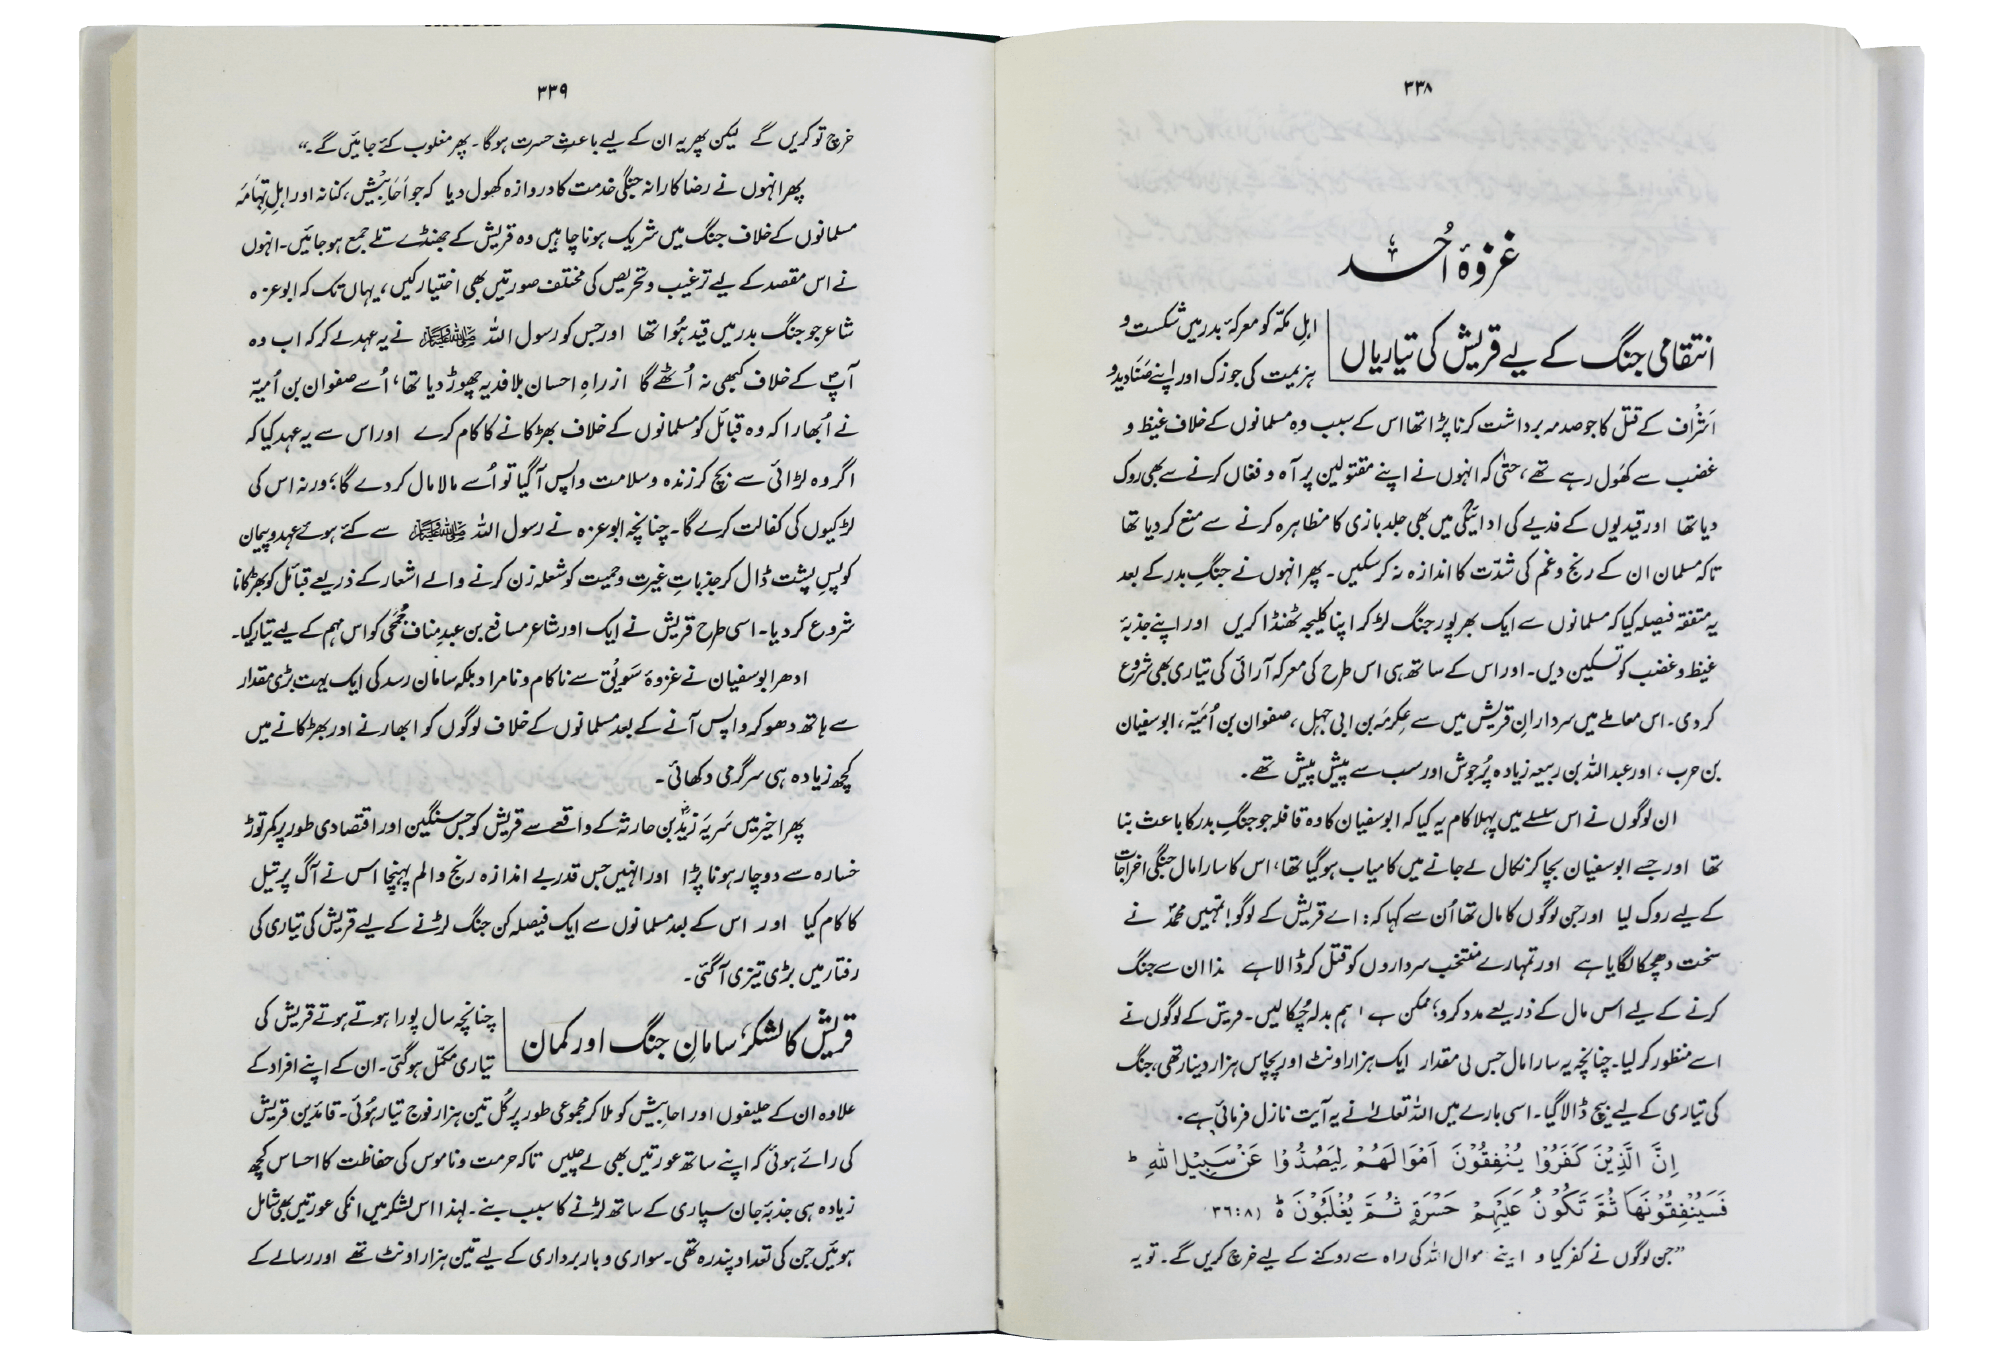 ۳۳۸
غزوۂ اُحد
انتقامی جنگ کے لیے قریش کی تیاریاں
اہلِ مکہّ کو معرکۂ بدر میں شکست و
ہزیمت کی جو زک اور اپنے صَنَادید و
اَشْراف کے قتل کا جو صدمہ برداشت کرنا پڑا تھا اس کے سبب وہ مسلمانوں کے خلاف غیظ و
غضب سے کھَول رہے تھے، حتیٰ کہ انہوں نے اپنے مقتولین پر آہ و فغاں کرنے سے بھی روک
دیا تھا اور قیدیوں کے فدیے کی ادائیگی میں بھی جلد بازی کا مظاہرہ کرنے سے منع کر دیا تھا
تاکہ مسلمان ان کے رنج و غم کی شدّت کا اندازہ نہ کر سکیں۔ پھر انہوں نے جنگِ بدر کے بعد
یہ متفقہ فیصلہ کیا کہ مسلمانوں سے ایک بھرپور جنگ لڑ کر اپنا کلیجہ ٹھنڈا کریں اور اپنے جذبۂ
غیظ و غضب کو تسکین دیں۔ اور اس کے ساتھ ہی اس طرح کی معرکہ آرائی کی تیاری بھی شروع
کر دی۔ اس معاملے میں سردارانِ قریش میں سے عکرمَہ بن ابی جہل، صفوان بن اُمَیّہ، ابوسفیان
بن حرب، اور عبد اللہ بن ربیعہ زیادہ پُر جوش اور سب سے پیش پیش تھے۔
ان لوگوں نے اس سلسلے میں پہلا کام یہ کیا کہ ابوسفیان کا وہ قافلہ جو جنگِ بدر کا باعث بنا
تھا اور جسے ابوسفیان بچا کر نکال لے جانے میں کامیاب ہو گیا تھا، اس کا سارا مال جنگی اخراجات
کے لیے روک لیا اور جن لوگوں کا مال تھا اُن سے کہا کہ: اے قریش کے لوگو! تمہیں محمدؐ نے
سخت دھچکا لگایا ہے اور تمہارے منتخب سرداروں کو قتل کر ڈالا ہے ـذا ان سے جنگ
کرنے کے لیے اس مال کے ذریعے مدد کرو؛ ممکن ہے ہم بدلہ چُکا لیں۔ قریش کے لوگوں نے
اسے منظور کر لیا۔ چنانچہ یہ سارا مال جس کی مقدار ایک ہزار اونٹ اور پچاس ہزار دینار تھی، جنگ
کی تیاری کے لیے بیچ ڈالا گیا۔ اسی بارے میں اللہ تعالےٰ نے یہ آیت نازل فرمائی ہے۔
اِنَّ الَّذِيْنَ كَفَرُوْا يُنْفِقُوْنَ اَمْوَالَهُمْ لِيَصُدُّوْا عَنْ سَبِيْلِ اللّٰهِ ط
فَسَيُنْفِقُوْنَهَا ثُمَّ تَكُوْنُ عَلَيْهِمْ حَسْرَةً ثُمَّ يُغْلَبُوْنَ ۵ (۳۶:۸
”جن لوگوں نے کفر کیا و اپنے موال اللہ کی راہ سے روکنے کے لیے خرچ کریں گے۔ تو یہ
۳۳۹
خرچ تو کریں گے لیکن پھر یہ ان کے لیے باعثِ حسرت ہو گا۔ پھر مغلوب کئے جائیں گے۔“
پھر انہوں نے رضاکارانہ جنگی خدمت کا دروازہ کھول دیا کہ جو اَحَابِیْش، کنانہ اور اہلِ تِہَامَہ
مسلمانوں کے خلاف جنگ میں شریک ہونا چاہیں وہ قریش کے جھنڈے تلے جمع ہو جائیں۔ انہوں
نے اس مقصد کے لیے ترغیب و تحریص کی مختلف صورتیں بھی اختیار کیں، یہاں تک کہ ابو عزہ
شاعر جو جنگِ بدر میں قید ہُوا تھا اور جس کو رسول اللہ ﷺ نے یہ عہد لے کر کہ اب وہ
آپؐ کے خلاف کبھی نہ اُٹھے گا ازراہِ احسان بلا فدیہ چھوڑ دیا تھا، اُسے صفوان بن اُمیّہ
نے اُبھارا کہ وہ قبائل کو مسلمانوں کے خلاف بھڑکانے کا کام کرے اور اس سے یہ عہد کیا کہ
اگر وہ لڑائی سے بچ کر زندہ و سلامت واپس آ گیا تو اُسے مالا مال کر دے گا؛ ورنہ اس کی
لڑکیوں کی کفالت کرے گا۔ چنانچہ ابو عزہ نے رسول اللہ ﷺ سے کئے ہوئے عہد و پیمان
کو پسِ پشت ڈال کر جذباتِ غیرت و حمیت کو شعلہ زن کرنے والے اشعار کے ذریعے قبائل کو بھڑکانا
شروع کر دیا۔ اسی طرح قریش نے ایک اور شاعر مسافع بن عبدِ مناف جُمَحِی کو اس مہم کے لیے تیار کیا۔
ادھر ابوسفیان نے غزوۂ سَوِیْق سے ناکام و نامراد بلکہ سامانِ رسد کی ایک بہت بڑی مقدار
سے ہاتھ دھو کر واپس آنے کے بعد مسلمانوں کے خلاف لوگوں کو ابھارنے اور بھڑکانے میں
کچھ زیادہ ہی سرگرمی دکھائی۔
پھر اخیر میں سَرِیۂ زیدؓ بن حارثہ کے واقعے سے قریش کو جس سنگین اور اقتصادی طور پر کمر توڑ
خسارہ سے دو چار ہونا پڑا اور انہیں جس قدر بے اندازہ رنج و الم پہنچا اس نے آگ پر تیل
کا کام کیا اور اس کے بعد مسلمانوں سے ایک فیصلہ کن جنگ لڑنے کے لیے قریش کی تیاری کی
رفتار میں بڑی تیزی آ گئی۔
قریش کا لشکر، سامانِ جنگ اور کمان
چنانچہ سال پورا ہوتے ہوتے قریش کی
تیاری مکمّل ہو گئی۔ ان کے اپنے افراد کے
علاوہ ان کے حلیفوں اور احابیش کو ملا کر مجموعی طور پر کُل تین ہزار فوج تیار ہُوئی۔ قائدینِ قریش
کی رائے ہوئی کہ اپنے ساتھ عورتیں بھی لے چلیں تاکہ حرمت و ناموس کی حفاظت کا احساس کچھ
زیادہ ہی جذبۂ جان سپاری کے ساتھ لڑنے کا سبب بنے۔ لہٰذا اس لشکر میں انکی عورتیں بھی شامل
ہوئیں جن کی تعداد پندرہ تھی۔ سواری و باربرداری کے لیے تین ہزار اونٹ تھے اور رسالے کے